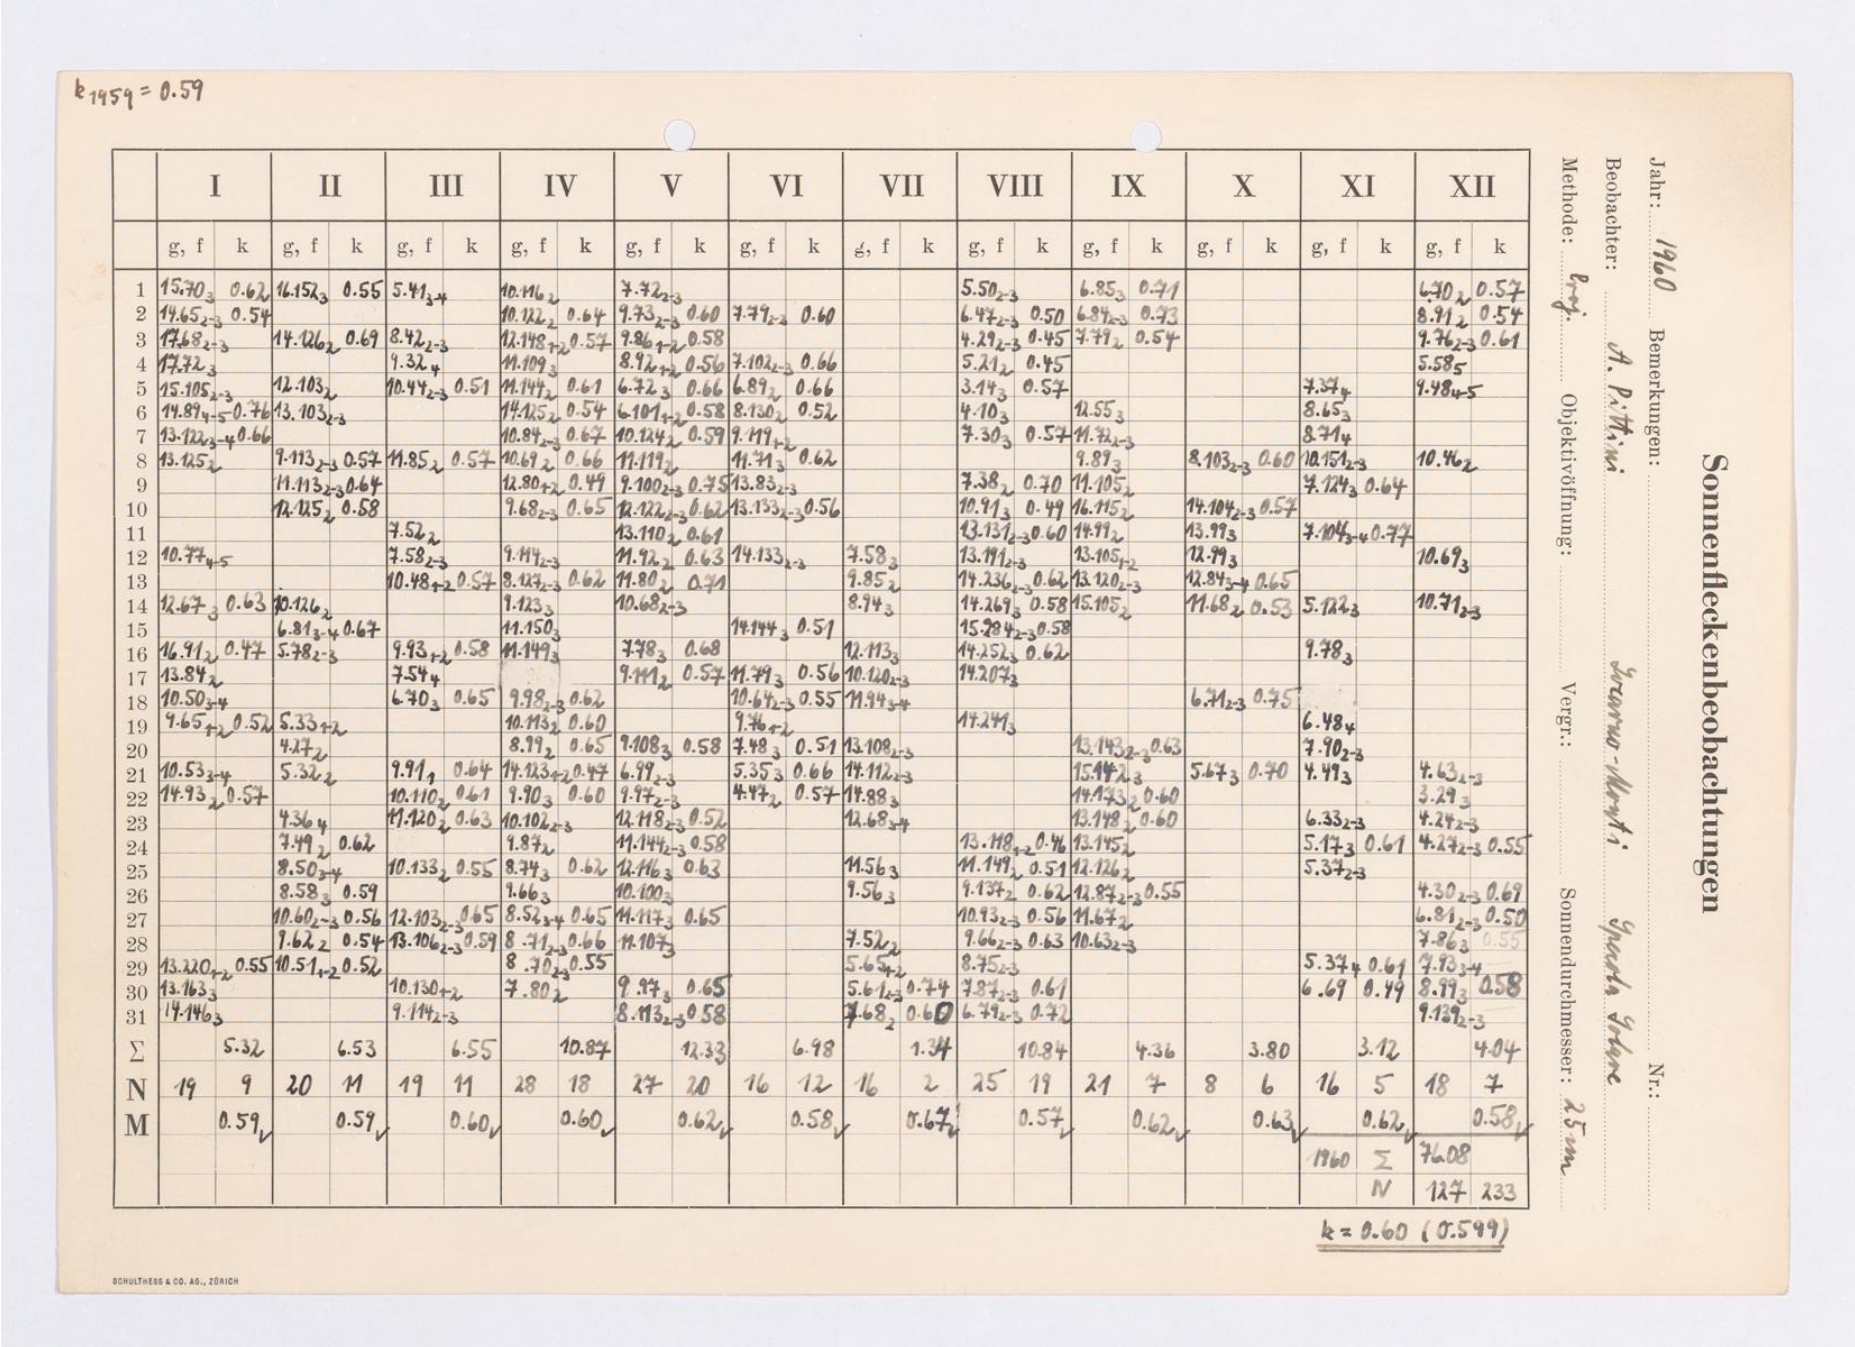 k1959 = 0.59
I II III IV V VI VII VIII IX X XI XII
g, f k g, f k g, f k g, f k g, f k g, f k g, f k g, f k g, f k g, f k g, f k g, f k
1 15.70₃ 0.62 16.152₃ 0.55 5.41₃₋₄ 10.116₂ 7.72₂₋₃ 5.50₂₋₃ 6.85₃ 0.71 6.70₂ 0.57
2 14.65₂₋₃ 0.54 10.122₂ 0.64 9.73₂₋₃ 0.60 7.79₂₋₃ 0.60 6.47₂₋₃ 0.50 6.84₂₋₃ 0.73 8.91₂ 0.54
3 17.68₂₋₃ 14.126₂ 0.69 8.42₂₋₃ 12.148₁₊₂ 0.57 9.86₁₊₂ 0.58 4.29₂₋₃ 0.45 7.79₂ 0.54 9.76₂₋₃ 0.61
4 17.72₃ 9.32₄ 11.109₃ 8.92₁₊₂ 0.56 7.102₂₋₃ 0.66 5.21₂ 0.45 5.58₅
5 15.105₂₋₃ 12.103₂ 10.44₂₋₃ 0.51 11.144₂ 0.61 6.72₃ 0.66 6.89₂ 0.66 3.14₃ 0.57 7.37₄ 9.48₄₋₅
6 14.89₄₋₅ 0.76 13.103₂₋₃ 14.125₂ 0.54 6.101₁₊₂ 0.58 8.130₂ 0.52 4.10₃ 12.55₃ 8.65₃
7 13.122₃₋₄ 0.66 10.84₂₋₃ 0.67 10.124₂ 0.59 9.119₁₊₂ 7.30₃ 0.57 11.72₂₋₃ 8.71₄
8 13.125₂ 9.113₂₋₃ 0.57 11.85₂ 0.57 10.69₂ 0.66 11.119₂ 11.71₃ 0.62 9.89₃ 8.103₂₋₃ 0.60 10.151₂₋₃ 10.46₂
9 11.113₂₋₃ 0.64 12.80₁₊₂ 0.49 9.100₂₋₃ 0.75 13.83₂₋₃ 7.38₂ 0.70 11.105₂ 7.124₃ 0.64
10 12.125₂ 0.58 9.68₂₋₃ 0.65 12.122₂₋₃ 0.62 13.133₂₋₃ 0.56 10.91₃ 0.49 16.115₂ 14.104₂₋₃ 0.57
11 7.52₂ 13.110₂ 0.61 13.131₂₋₃ 0.60 14.99₂ 13.99₃ 7.104₃₋₄ 0.77
12 10.77₄₋₅ 7.58₂₋₃ 9.114₂₋₃ 11.92₂ 0.63 14.133₂₋₃ 7.58₃ 13.191₂₋₃ 13.105₁₊₂ 12.99₃ 10.69₃
13 10.48₁₊₂ 0.57 8.127₂₋₃ 0.62 11.80₂ 0.71 9.85₂ 14.236₂₋₃ 0.62 13.120₂₋₃ 12.84₃₋₄ 0.65
14 12.67₃ 0.63 10.126₂ 9.123₃ 10.68₂₋₃ 8.94₃ 14.269₃ 0.58 15.105₂ 11.68₂ 0.53 5.122₃ 10.71₂₋₃
15 6.81₃₋₄ 0.67 11.150₃ 14.144₃ 0.51 15.284₂₋₃ 0.58
16 16.91₂ 0.47 5.78₂₋₃ 9.93₁₊₂ 0.58 11.149₃ 7.78₃ 0.68 12.113₃ 14.252₃ 0.62 9.78₃
17 13.84₂ 7.54₄ 9.111₂ 0.57 11.79₃ 0.56 10.120₂₋₃ 14.207₃
18 10.50₃₋₄ 6.70₃ 0.65 9.98₂₋₃ 0.62 10.64₂₋₃ 0.55 11.94₃₋₄ 6.71₂₋₃ 0.75
19 9.65₁₊₂ 0.52 5.33₁₊₂ 10.113₂ 0.60 9.76₁₊₂ 14.241₃ 6.48₄
20 4.27₂ 8.99₂ 0.65 9.108₃ 0.58 7.48₃ 0.51 13.108₂₋₃ 13.143₂₋₃ 0.63 7.90₂₋₃
21 10.53₃₋₄ 5.32₂ 9.91₁ 0.64 14.123₁₊₂ 0.47 6.99₂₋₃ 5.35₃ 0.66 14.112₂₋₃ 15.142₃ 5.67₃ 0.70 4.49₃ 4.63₂₋₃
22 14.93₂ 0.57 10.110₂ 0.61 9.90₃ 0.60 9.97₂₋₃ 4.47₂ 0.57 14.88₃ 14.173₂ 0.60 3.29₃
23 4.36₄ 11.120₂ 0.63 10.102₂₋₃ 12.118₂₋₃ 0.52 12.68₃₋₄ 13.148₂ 0.60 6.33₂₋₃ 4.24₂₋₃
24 7.49₂ 0.62 9.87₂ 11.144₂₋₃ 0.58 13.118₁₊₂ 0.46 13.145₂ 5.17₃ 0.61 4.27₂₋₃ 0.55
25 8.50₃₋₄ 10.133₂ 0.55 8.74₃ 0.62 12.116₃ 0.63 11.56₃ 11.149₂ 0.51 12.126₂ 5.37₂₋₃
26 8.58₃ 0.59 9.66₃ 10.100₃ 9.56₃ 9.137₂ 0.62 12.87₂₋₃ 0.55 4.30₂₋₃ 0.69
27 10.60₂₋₃ 0.56 12.103₂₋₃ 0.65 8.52₃₋₄ 0.65 11.117₃ 0.65 10.93₂₋₃ 0.56 11.67₂ 6.81₂₋₃ 0.50
28 9.62₂ 0.54 13.106₂₋₃ 0.59 8.71₂₋₃ 0.66 11.107₃ 7.52₂ 9.66₂₋₃ 0.63 10.63₂₋₃ 7.86₃ 0.55
29 13.220₁₊₂ 0.55 10.51₁₋₂ 0.52 8.70₂₋₃ 0.55 5.65₁₊₂ 8.75₂₋₃ 5.37₄ 0.61 7.93₃₋₄
30 13.163₃ 10.130₁₊₂ 7.80₂ 9.97₃ 0.65 5.61₂₋₃ 0.74 7.87₂₋₃ 0.61 6.69 0.49 8.99₃ 0.58
31 14.146₃ 9.114₂₋₃ 8.113₂₋₃ 0.58 7.68₂ 0.60 6.79₂₋₃ 0.72 9.139₂₋₃
Σ 5.32 6.53 6.55 10.87 12.33 6.98 1.34 10.84 4.36 3.80 3.12 4.04
N 19 9 20 11 19 11 28 18 27 20 16 12 16 2 25 19 21 7 8 6 16 5 18 7
M 0.59 0.59 0.60 0.60 0.62 0.58 0.67 0.57 0.62 0.63 0.62 0.58
1960 Σ 76.08
N 127 233
k = 0.60 (0.599)
SCHULTHESS & CO. AG., ZÜRICH
Sonnenfleckenbeobachtungen
Jahr: 1960 Bemerkungen: Nr.:
Beobachter: A. Pittini Locarno-Monti Specola Solare
Methode: Proj. Objektivöffnung: Vergr.: Sonnendurchmesser: 25 cm